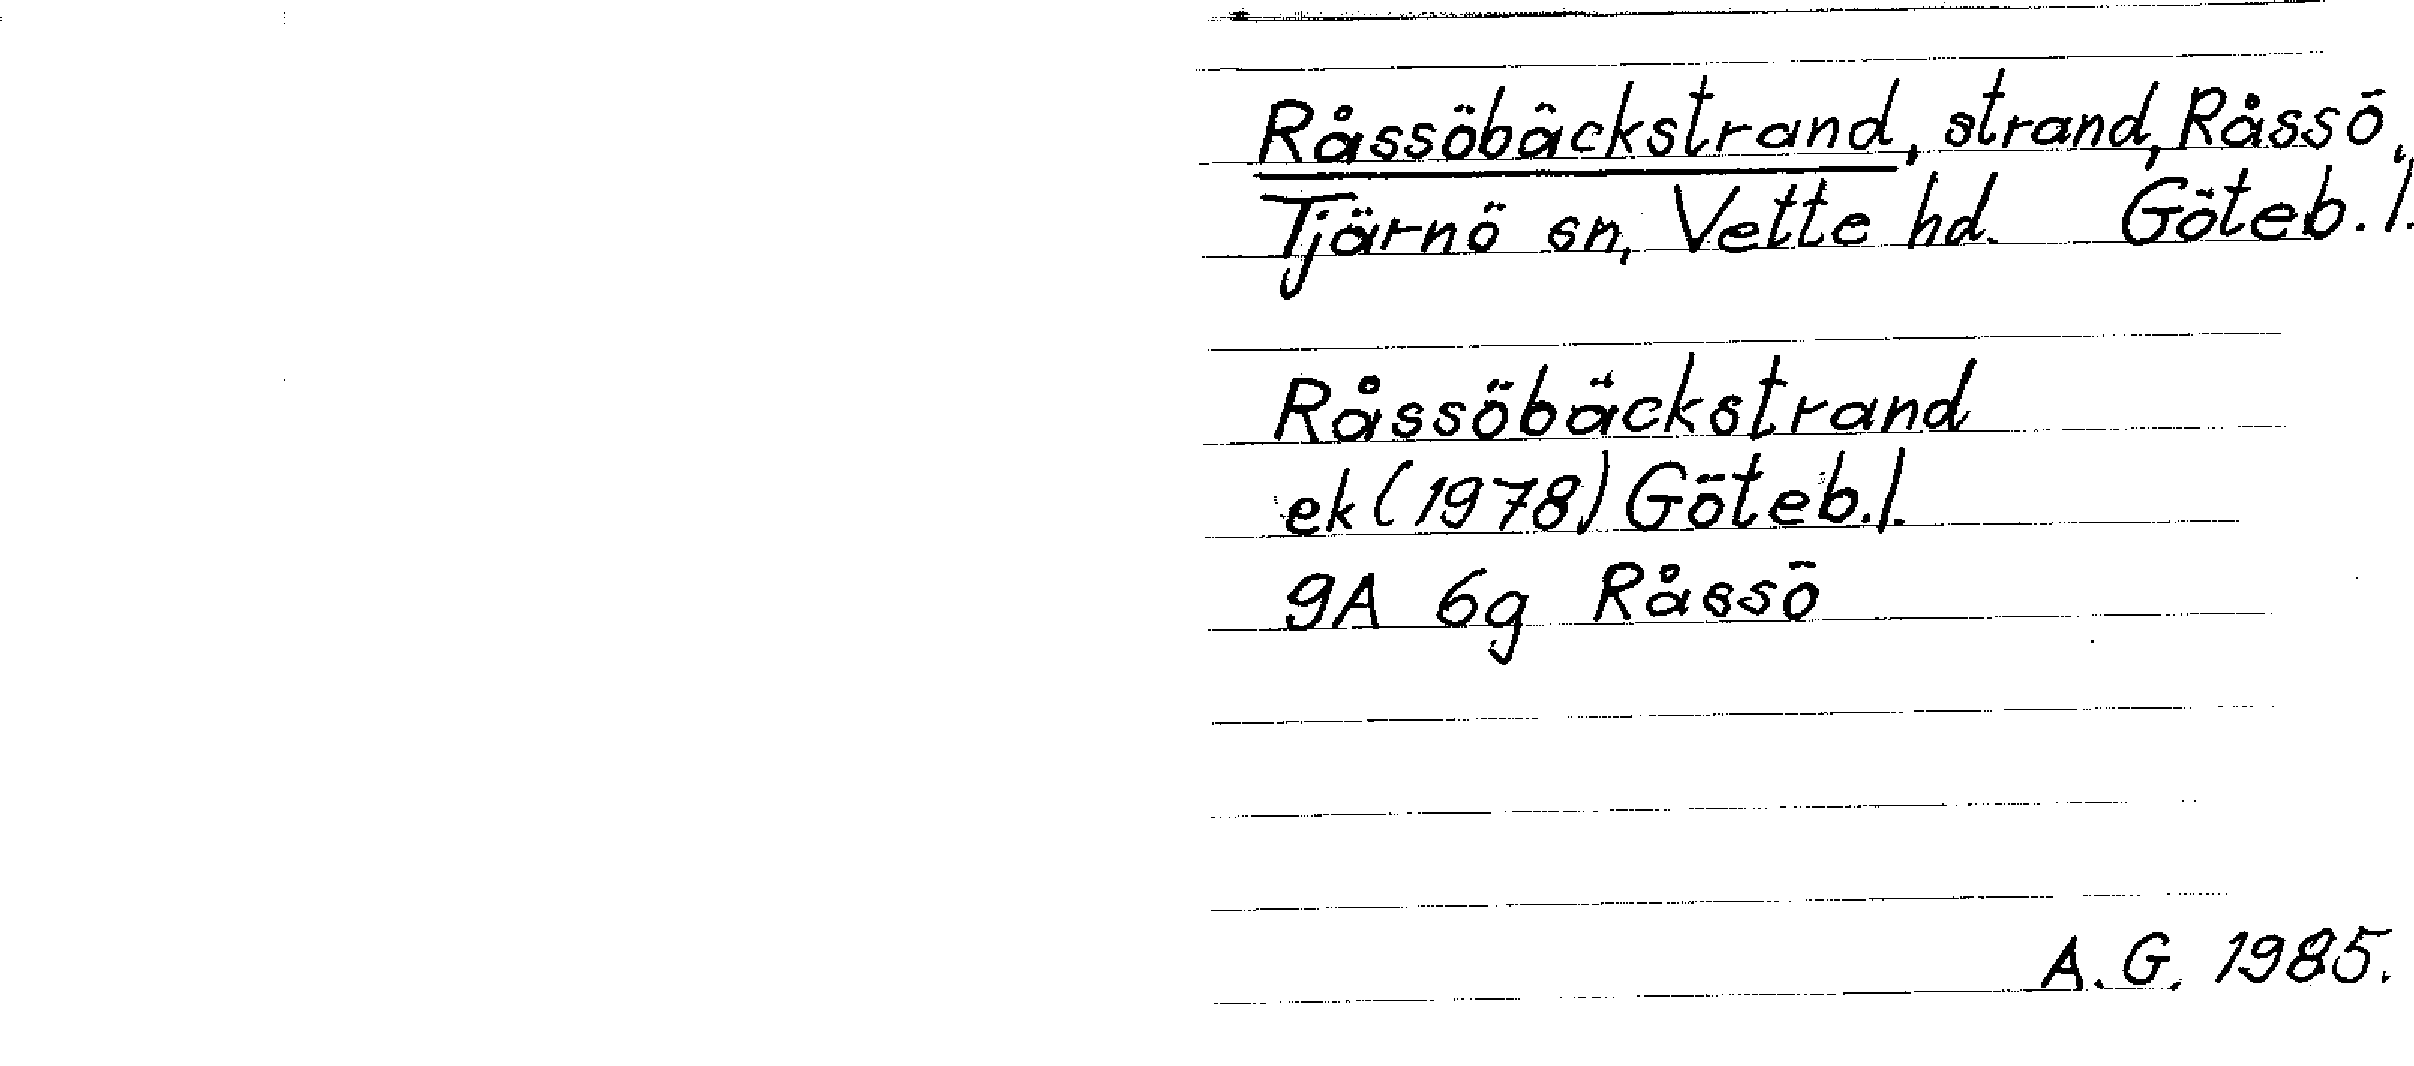 Råssöbäckstrand, strand, Råssö,
Tjärnö sn, Vette hd. Göteb. l.
Råssöbäckstrand
ek (1978) Göteb. l.
9A 6g Råssö
A. G. 1985.